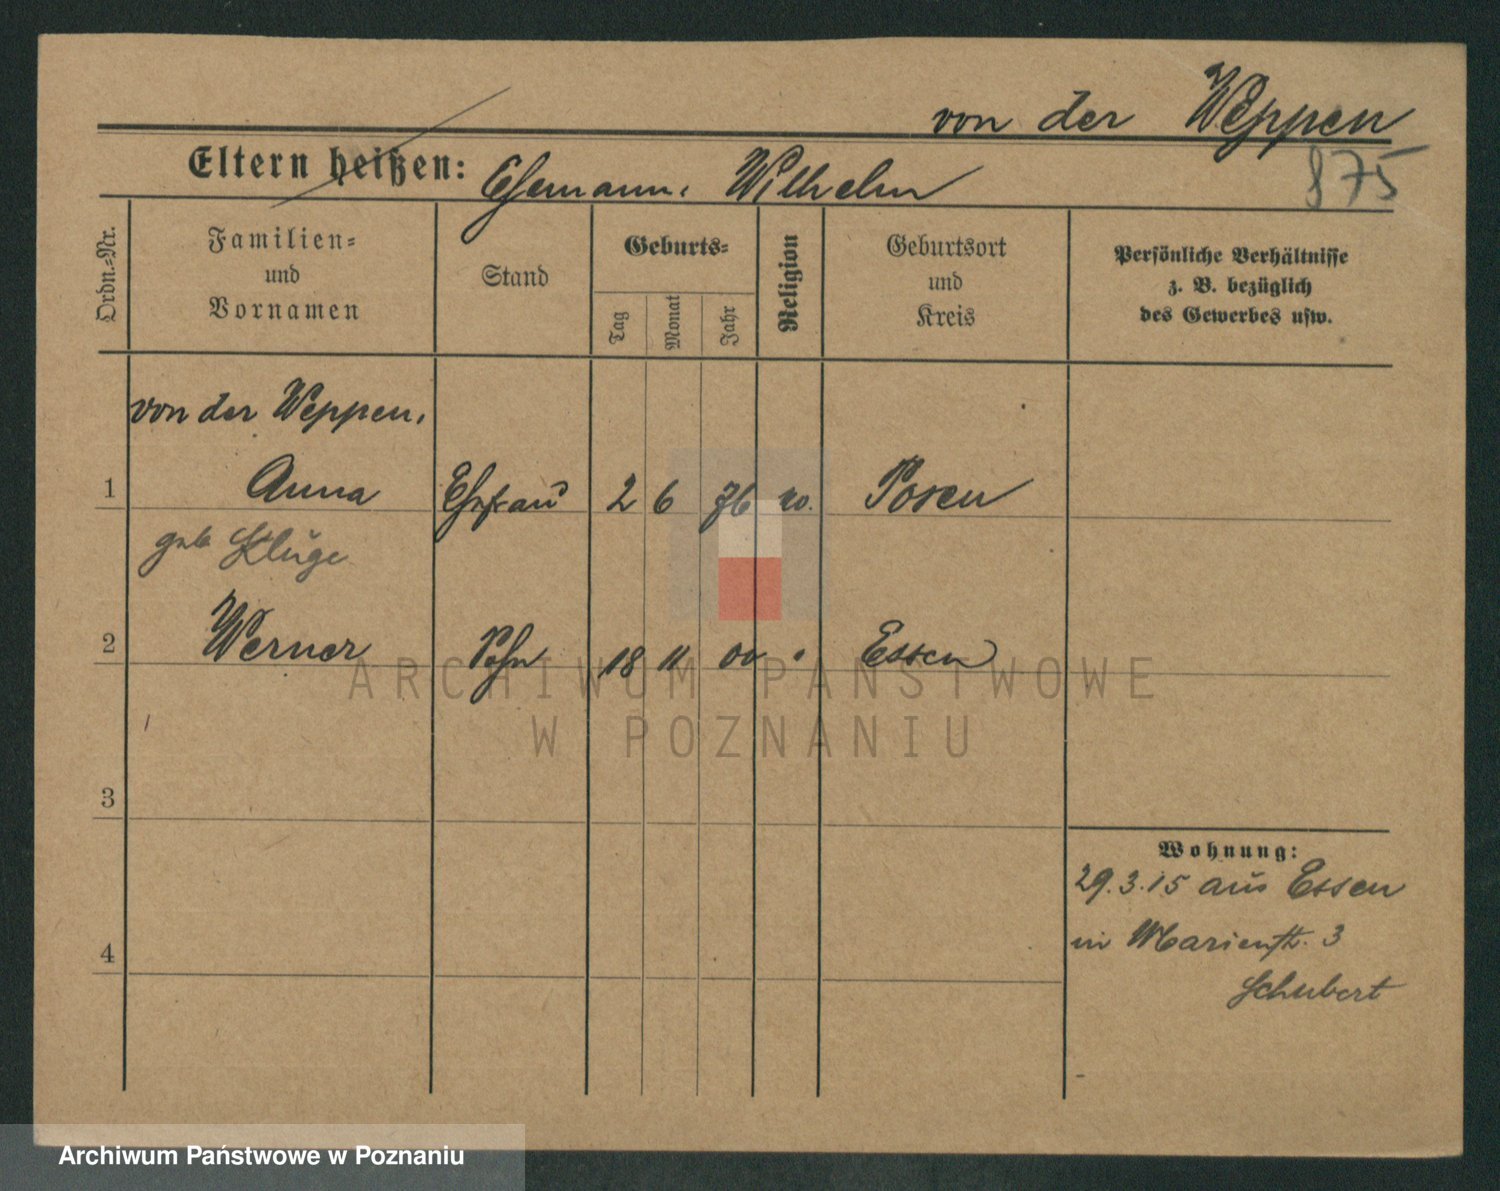 von der Weppen
875
Eltern heißen: Ehemann: Wilhelm
Ordn.-Nr.
Familien-
und
Vornamen
Stand
Geburts-
Tag
Monat
Jahr
Religion
Geburtsort
und
Kreis
Persönliche Verhältnisse
z. B. bezüglich
des Gewerbes usw.
von der Weppen,
1 Anna Ehefrau 2 6 76 Posen
geb. Kluge
2 Werner Sohn 18 11 00 " Essen
3
4
Wohnung:
29.3.15 aus Essen
in Marienstr. 3
Schubert
ARCHIWUM PAŃSTWOWE
W POZNANIU
Archiwum Państwowe w Poznaniu